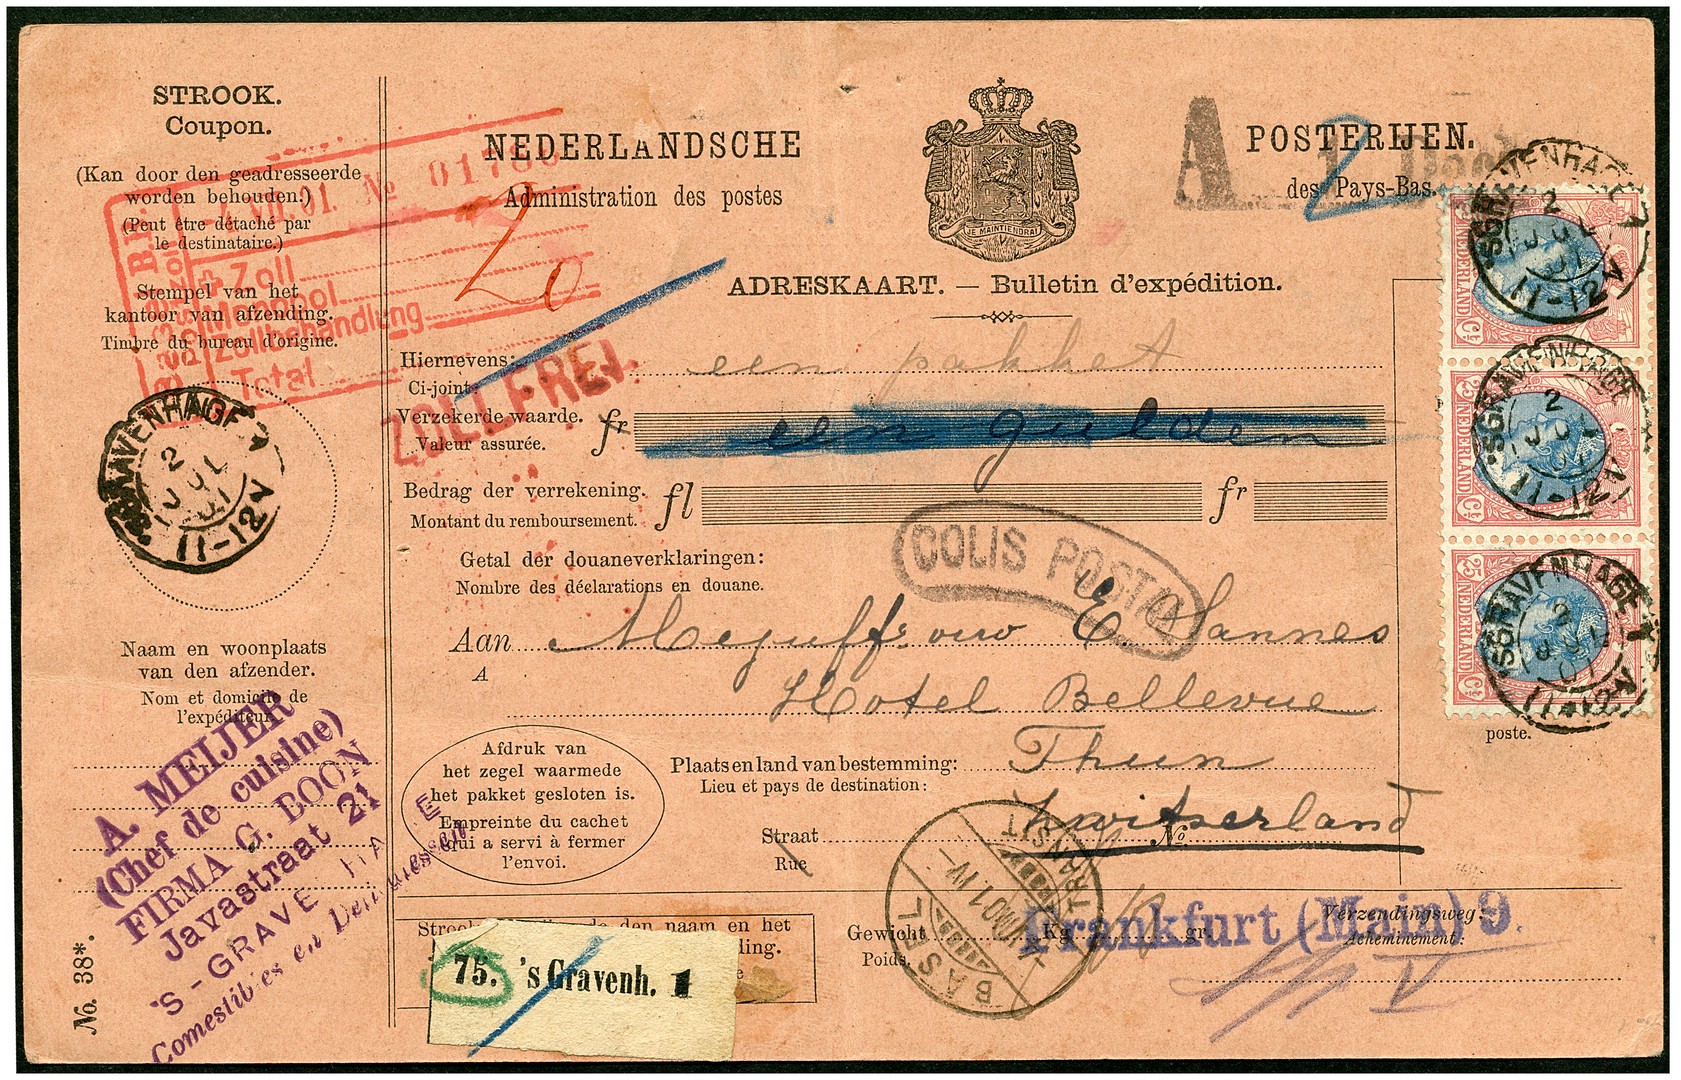 STROOK.
Coupon.
(Kan door den geadresseerde
worden behouden.)
(Peut être détaché par
le destinataire.)
Stempel van het
kantoor van afzending.
Timbre du bureau d'origine.
'SGRAVENHAGE 1
2
JUL
01
11-12V
Naam en woonplaats
van den afzender.
Nom et domicile de
l'expéditeur.
A. MEIJER
(Chef de cuisine)
FIRMA G. BOON
Javastraat 21
'S-GRAVENHAGE
Comestibles en
No. 38*.
B.P.
01. No
Zoll
Zollbehandlung
Total
20
ZOLLFREI.
NEDERLANDSCHE
POSTERIJEN.
Administration des postes
des Pays-Bas.
JE MAINTIENDRAI
A
2
ADRESKAART. — Bulletin d'expédition.
Hiernevens:
Ci-joint
een pakket
Verzekerde waarde.
Valeur assurée.
fr
een gulden
Bedrag der verrekening.
Montant du remboursement.
fl
fr
COLIS POSTA
Getal der douaneverklaringen:
Nombre des déclarations en douane.
Aan
A
Mejuffrouw E. Sannes
Hotel Bellevue
Afdruk van
het zegel waarmede
het pakket gesloten is.
Empreinte du cachet
qui a servi à fermer
l'envoi.
Plaats en land van bestemming:
Lieu et pays de destination:
Thun
Zwitserland
Straat
Rue
No
Gewicht
Poids.
Kg.
gr.
Verzendingsweg:
Acheminement:
Frankfurt (Main) 9.
V
BASEL
TRANSIT
Strook
den naam en het
75. 's Gravenh. 1
'SGRAVENHAGE 1
2
JUL
01
11-12V
NEDERLAND
Ct
'SGRAVENHAGE
2
JUL
01
11-12V
25 NEDERLAND
Ct
'SGRAVENHAGE
2
JUL
01
11-12V
25 NEDERLAND
Ct
poste.